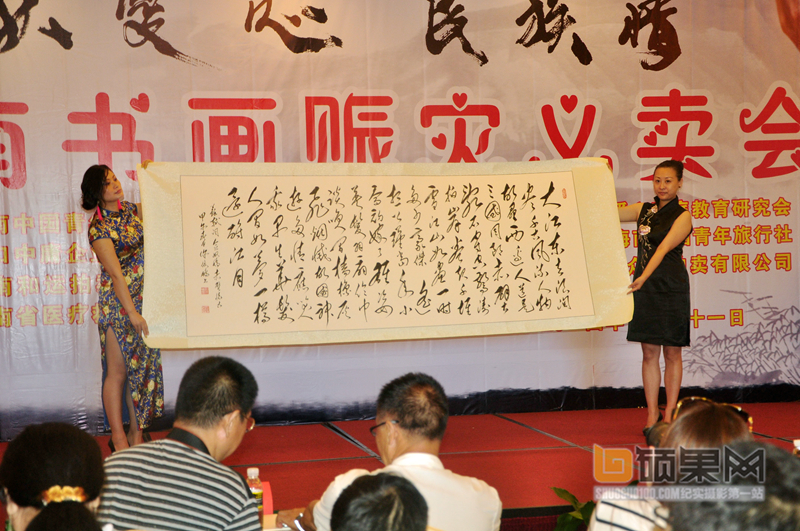 爱心 民族情
南书画赈灾义卖会
大江东去浪淘
尽千古风流人物
故垒西边人道是
三国周郎赤壁
乱石穿空惊涛
拍岸卷起千堆
雪江山如画一时
多少豪杰遥
想公瑾当年小
乔初嫁了雄姿
英发羽扇纶巾
谈笑间樯橹灰
飞烟灭故国神
游多情应笑
我早生华发
人间如梦一樽
还酹江月
南中国青
中国
南省医疗
教育研究会
青年旅行社
卖有限公司
十一日
硕果网
纪实摄影第一站